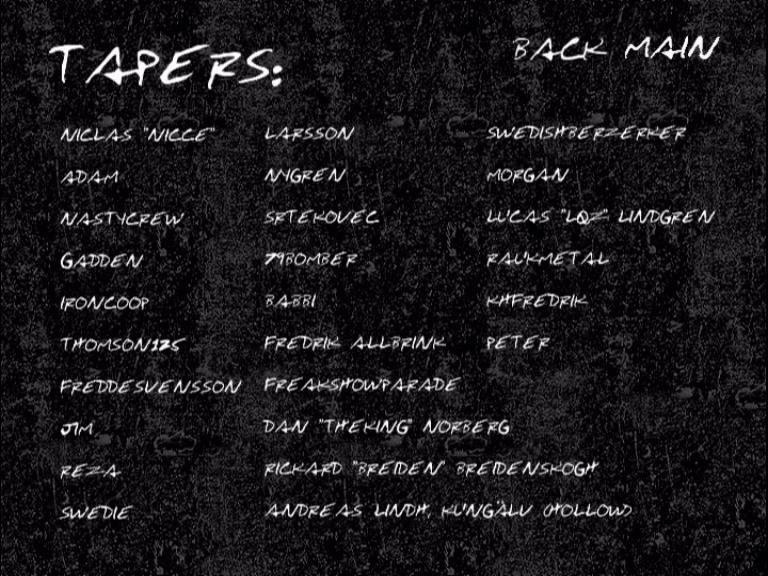 TAPERS: BACK MAIN
NICLAS "NICCE" LARSSON SWEDISHBERZERKER
ADAM NYGREN MORGAN
NASTYCREW SRTEKOVEC LUCAS "LQZ" LINDGREN
GADDEN 79BOMBER RAUKMETAL
IRONCOOP BABBI KHFREDRIK
THOMSON125 FREDRIK ALLBRINK PETER
FREDDESVENSSON FREAKSHOWPARADE
JIM DAN "THEKING" NORBERG
REZA RICKARD "BREIDEN" BREIDENSKOGH
SWEDIE ANDREAS LINDH, KUNGÄLV (HOLLOW)